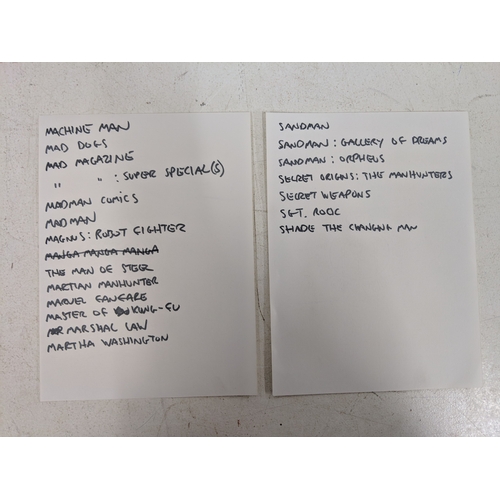 MACHINE MAN
MAD DOGS
MAD MAGAZINE
" " : SUPER SPECIAL(S)
MADMAN COMICS
MADMAN
MAGNUS: ROBOT FIGHTER
MANGA MANGA MANGA
THE MAN OF STEEL
MARTIAN MANHUNTER
MARVEL FANFARE
MASTER OF KUNG-FU
MARSHAL LAW
MARTHA WASHINGTON
SANDMAN
SANDMAN : GALLERY OF DREAMS
SANDMAN : ORPHEUS
SECRET ORIGINS: THE MANHUNTERS
SECRET WEAPONS
SGT. ROCK
SHADE THE CHANGING MAN